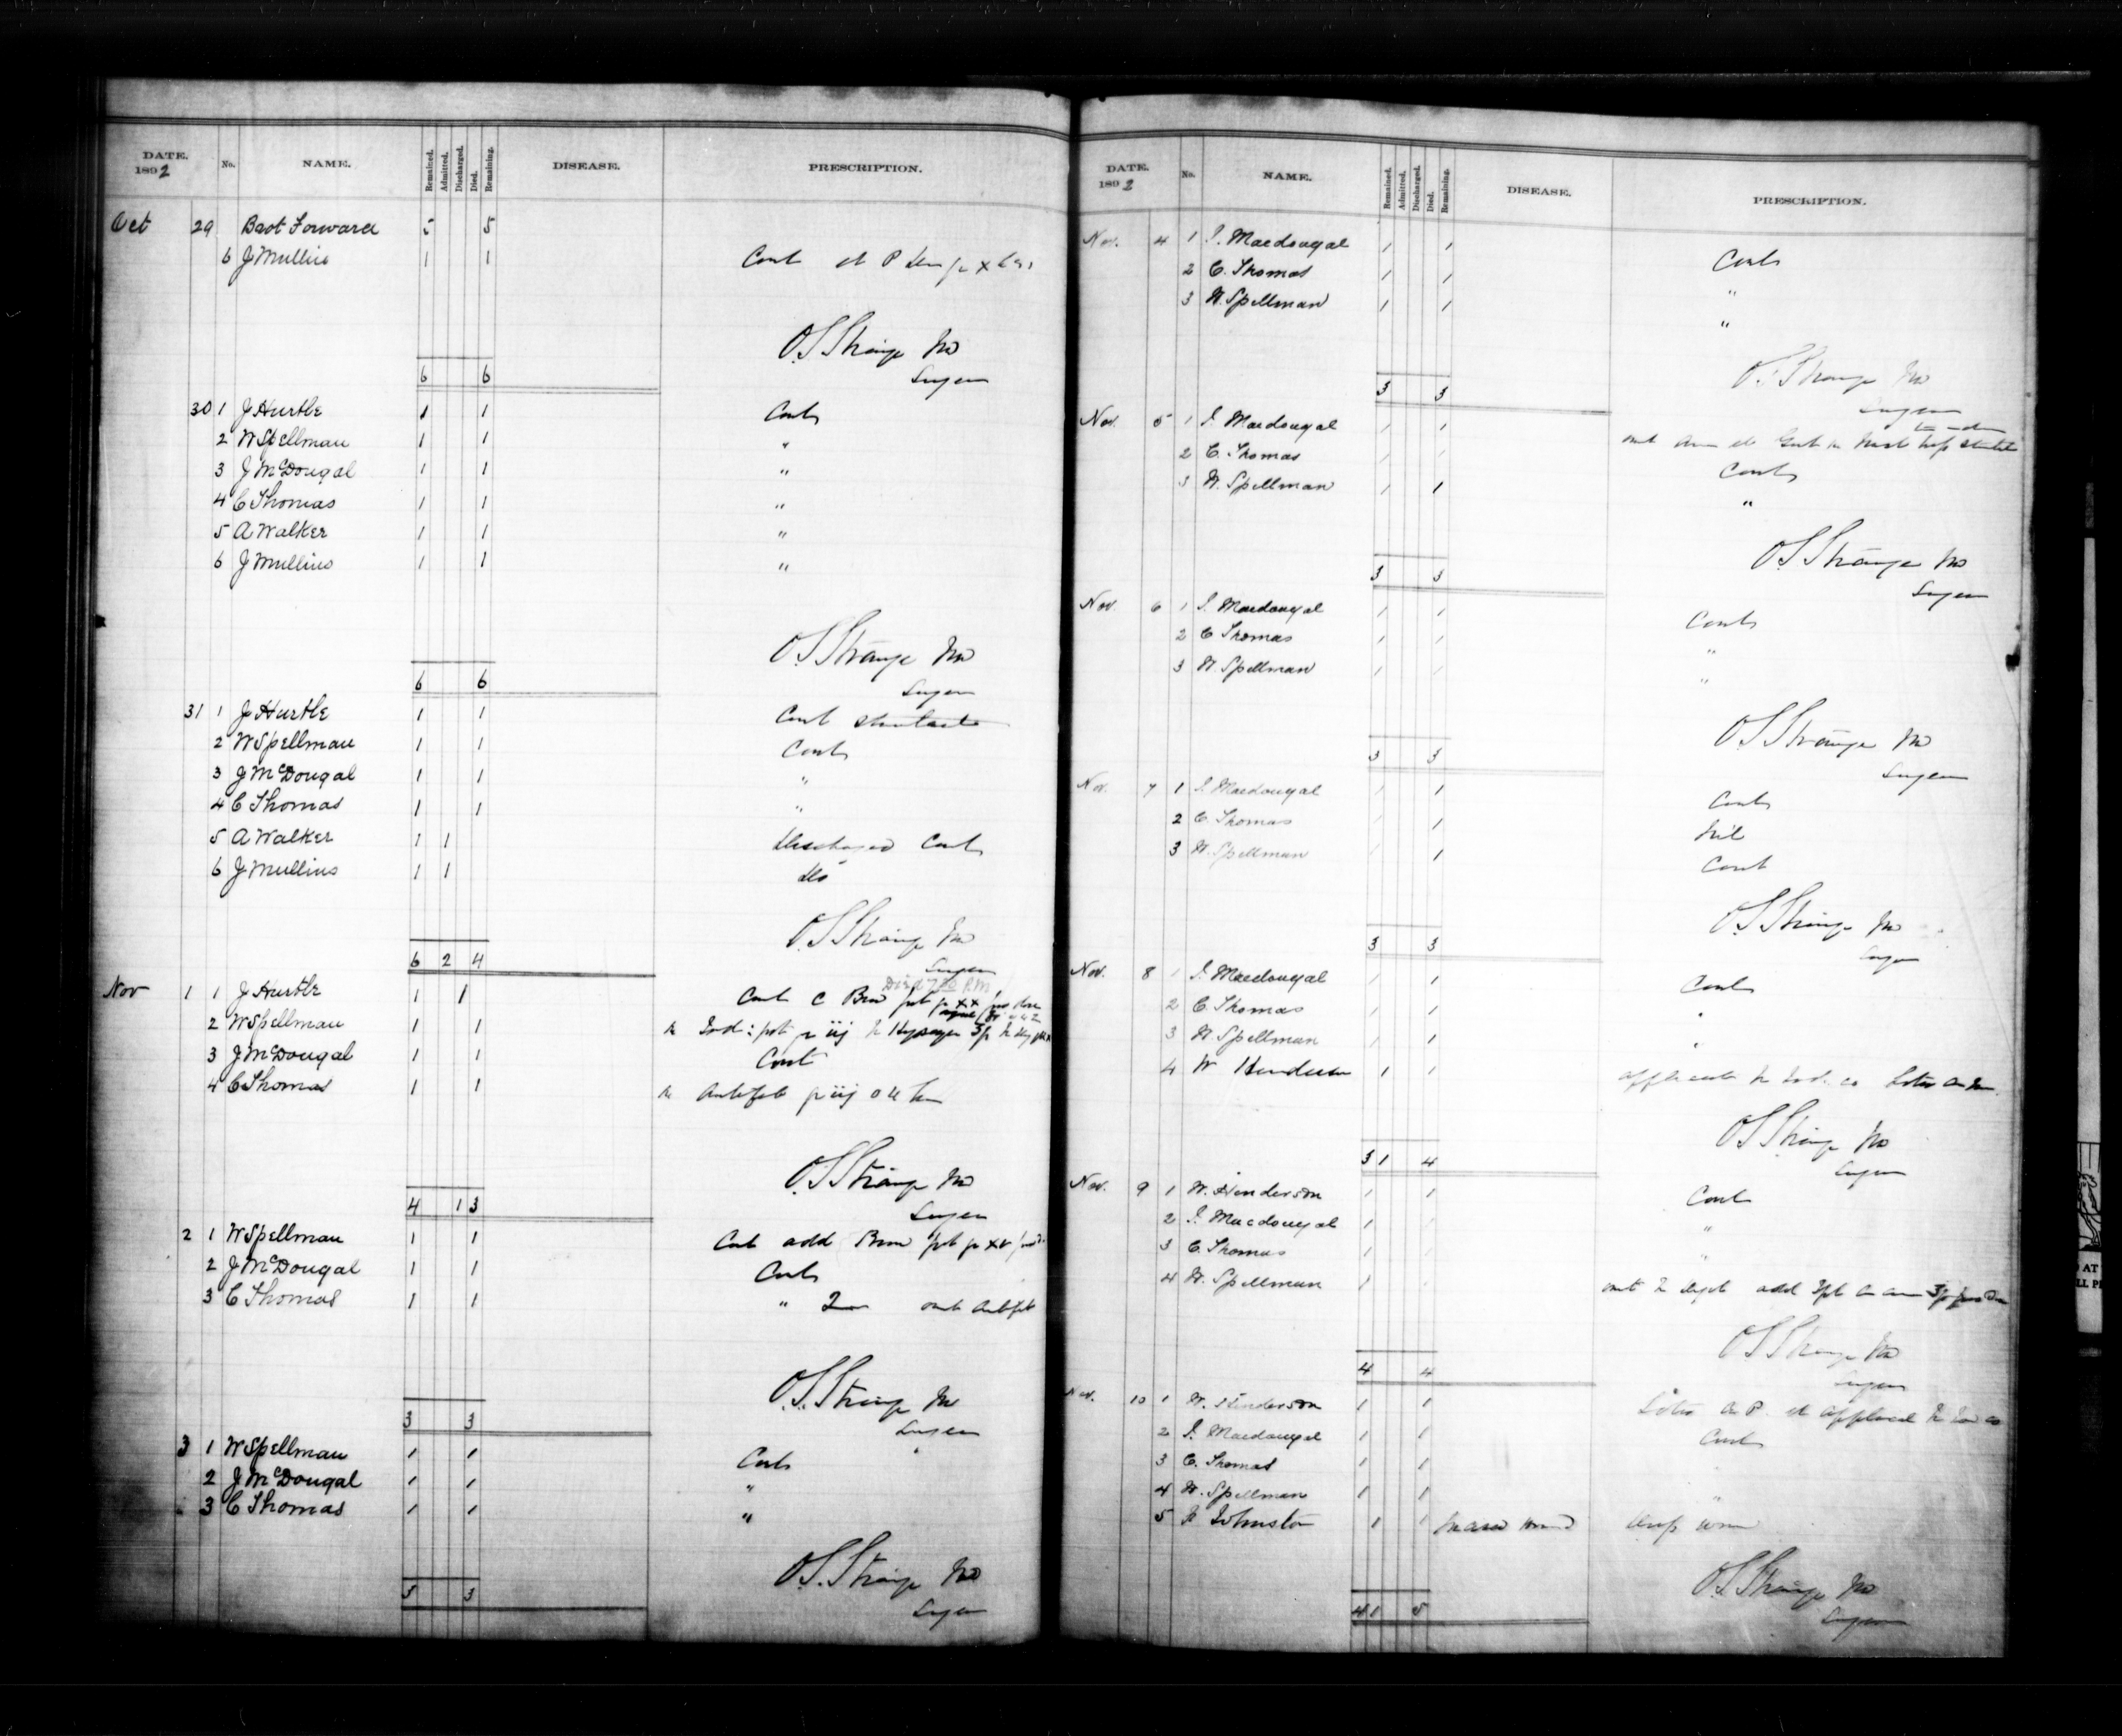 DATE. 1892 No. NAME. Remained. Admitted. Discharged. Died. Remaining. DISEASE. PRESCRIPTION.
Oct 29 Brot Forward 5 5
6 J Mullins 1 1 Cont
O.S. Strange MD
6 6 Surgeon
30 1 J Hurtle 1 1 Cont
2 W Spellman 1 1 "
3 J McDougal 1 1 "
4 C Thomas 1 1 "
5 A Walker 1 1 "
6 J Mullins 1 1 "
O.S. Strange MD
6 6 Surgeon
31 1 J Hurtle 1 1 Cont
2 W Spellman 1 1 Cont
3 J McDougal 1 1 "
4 C Thomas 1 1 "
5 A Walker 1 1 Discharged Cont
6 J Mullins 1 1 do
O.S. Strange MD
6 2 4 Surgeon
Nov 1 1 J Hurtle 1 1 Cont
2 W Spellman 1 1
3 J McDougal 1 1 Cont
4 C Thomas 1 1
O.S. Strange MD
4 1 3 Surgeon
2 1 W Spellman 1 1 Cont add
2 J McDougal 1 1 Cont
3 C Thomas 1 1 "
O.S. Strange MD
3 3 Surgeon
3 1 W Spellman 1 1 Cont
2 J McDougal 1 1 "
3 C Thomas 1 1 "
O.S. Strange MD
3 3 Surgeon
DATE. 1892 No. NAME. Remained. Admitted. Discharged. Died. Remaining. DISEASE. PRESCRIPTION.
Nov. 4 1 J. Macdougal 1 1 Cont
2 C. Thomas 1 1 "
3 W. Spellman 1 1 "
O.S. Strange MD
3 3 Surgeon
Nov. 5 1 J. Macdougal 1 1
2 C. Thomas 1 1 Cont
3 W. Spellman 1 1 "
O.S. Strange MD
3 3 Surgeon
Nov. 6 1 J. Macdougal 1 1 Cont
2 C Thomas 1 1 "
3 W. Spellman 1 1 "
O.S. Strange MD
3 3 Surgeon
Nov. 7 1 J. Macdougal 1 1 Cont
2 C. Thomas 1 1 Nil
3 W. Spellman 1 1 Cont
O.S. Strange MD
3 3 Surgeon
Nov. 8 1 J. Macdougal 1 1 Cont
2 C Thomas 1 1 "
3 W Spellman 1 1 "
4 W Henderson 1 1
O.S. Strange MD
3 1 4 Surgeon
Nov. 9 1 W. Henderson 1 1 Cont
2 J. Macdougal 1 1 "
3 C. Thomas 1 1 "
4 W. Spellman 1 1
O.S. Strange MD
4 4 Surgeon
Nov. 10 1 W. Henderson 1 1
2 J. Macdougal 1 1 Cont
3 C. Thomas 1 1 "
4 W. Spellman 1 1 "
5 Johnston 1 1
O.S. Strange MD
4 1 5 Surgeon